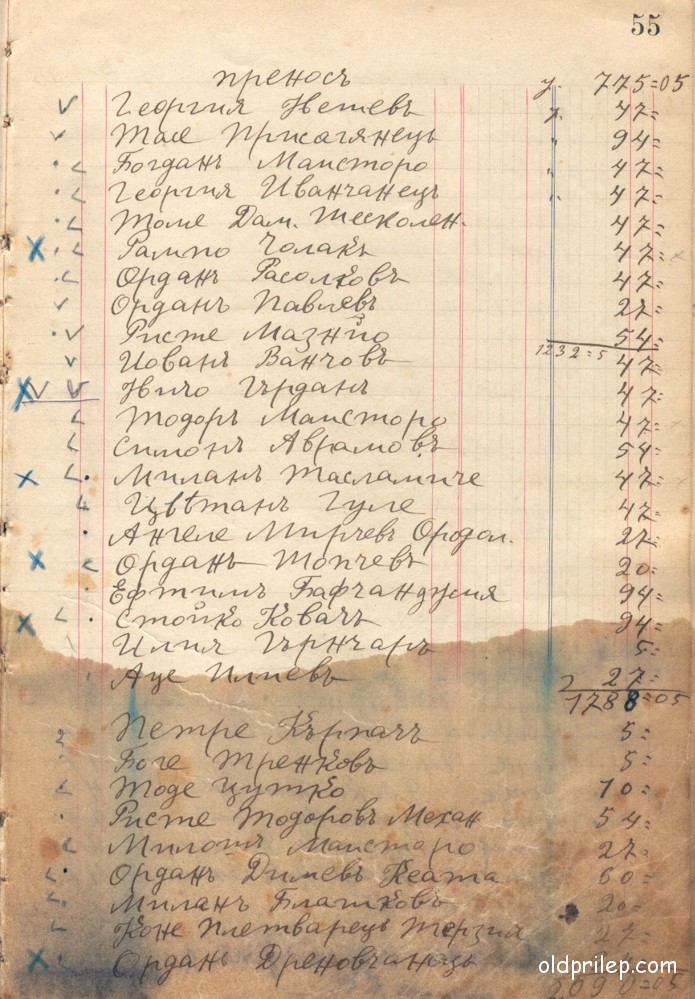 55
преносъ у. 775=05
Георгия Нешевъ у. 47=
Тасе Присагянецъ " 94=
Богданъ Маисторо " 47=
Георгия Иванчанецъ " 47=
Томе Дам. 47=
Рампо Чолакъ 47=
Орданъ Расолковъ 47=
Орданъ Павлевъ 27=
Ристе Мазнйо 54=
1232=5
Иованъ Ванчовъ 47=
Ничо Гърданъ 47=
Тодоръ Маисторо 47=
Симонъ Аврамовъ 54=
Миланъ Тасламиче 47=
Цвѣтанъ Гуле 47=
Ангеле Мирчевъ 27=
Орданъ Топчевъ 20=
Ефтимъ Бафчанджия 94=
Стойко Ковачъ 94=
Илия Гърнчаръ 5=
Аце Илиевъ 27=
1788=05
Петре Кърпачъ 5=
Боге Тренковъ 5=
Тоде Цутко 10=
Ристе Тодоровъ Механ 54=
Милошъ Маисторо 27=
Орданъ Димевъ Кеата 60=
Миланъ Блашковъ 20=
Коне Плетварецъ Терзия 27=
Орданъ Дреновчанецъ
oldprilep.com